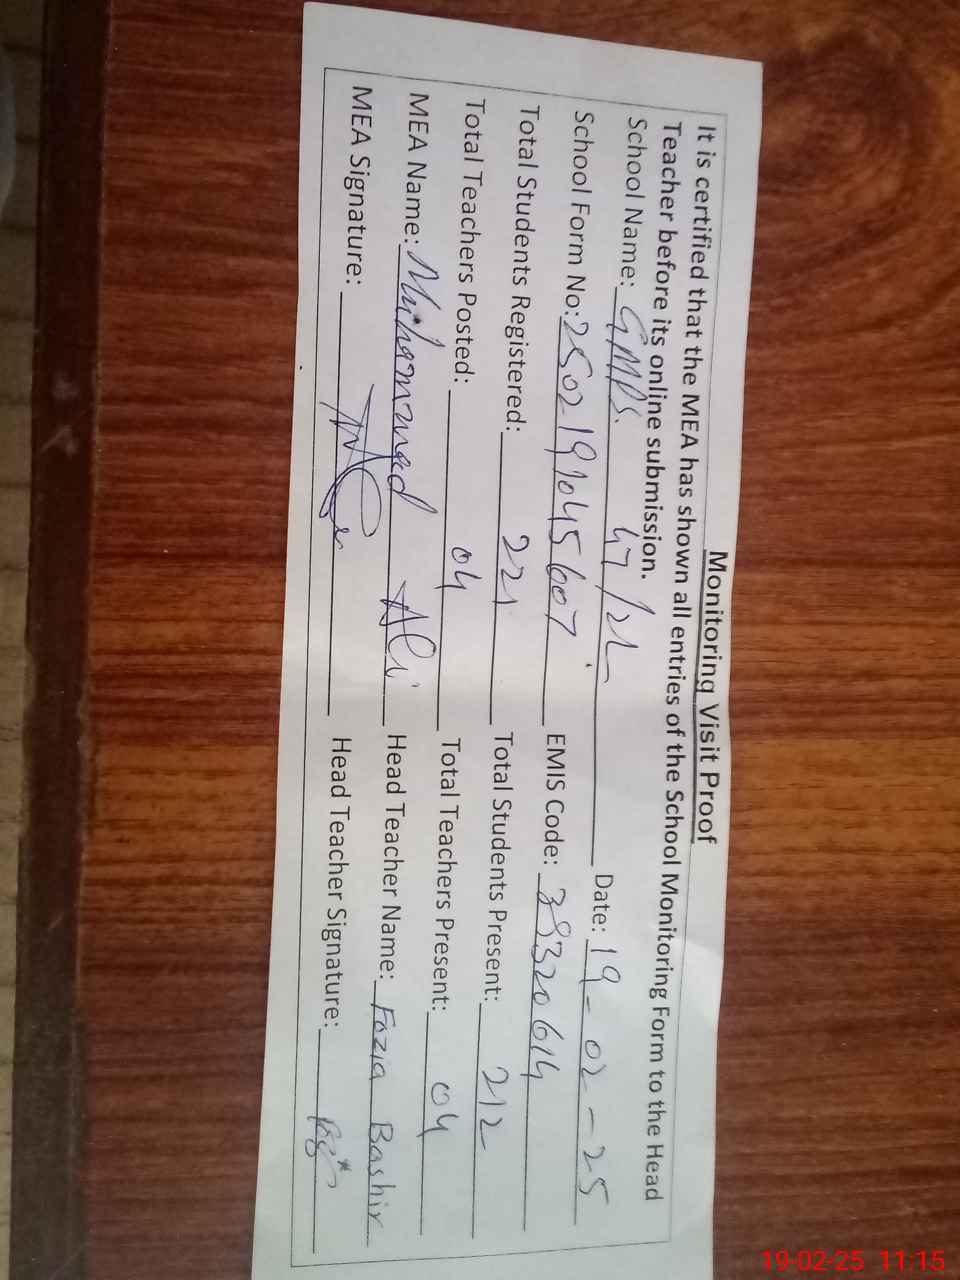 Monitoring Visit Proof
It is certified that the MEA has shown all entries of the School Monitoring Form to the Head
Teacher before its online submission.
School Name: GMPS. 47/2L Date: 19-02-25
School Form No: 25021919045607 EMIS Code: 39320614
Total Students Registered: 221 Total Students Present: 212
Total Teachers Posted: 04 Total Teachers Present: 04
MEA Name: Muhammad Ali Head Teacher Name: Fozia Bashir
MEA Signature: Head Teacher Signature:
19-02-25 11:15